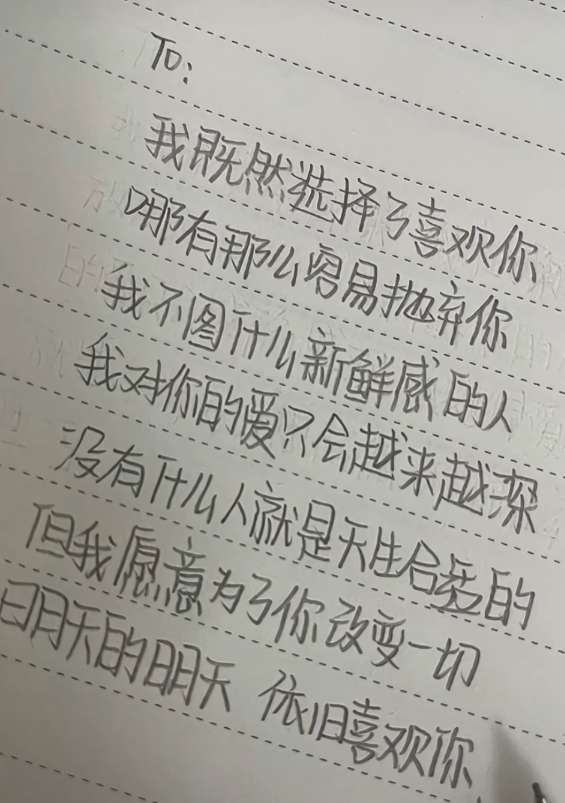 To:
我既然选择了喜欢你
哪有那么容易抛弃你
我不图什么新鲜感的人
我对你的爱只会越来越深
没有什么人就是天生合适的
但我愿意为了你改变一切
明天的明天 依旧喜欢你